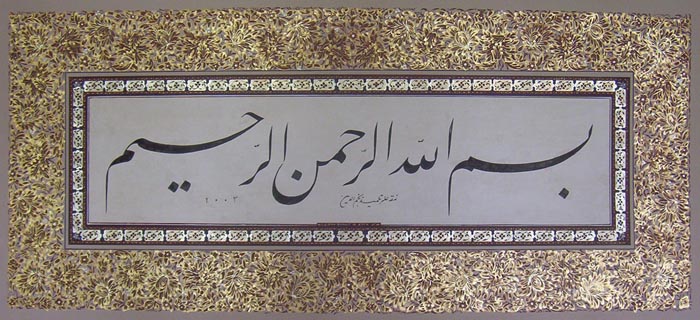 بسم الله الرحمن الرحيم
٢٠٠٣